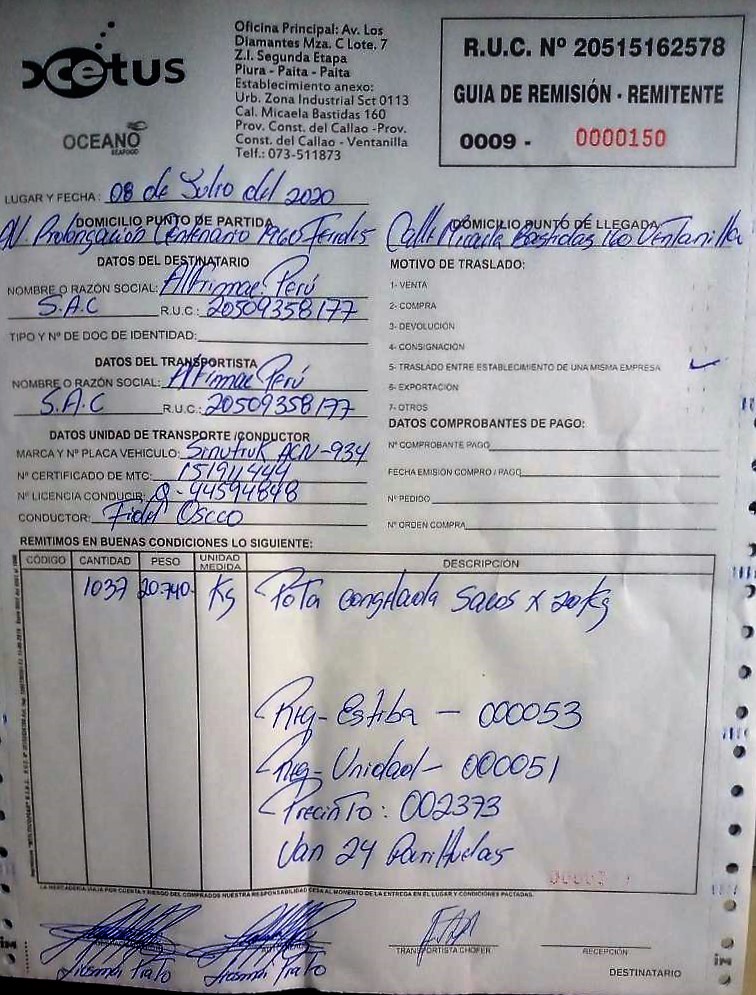 cetus
OCEANO
SEAFOOD
Oficina Principal: Av. Los
Diamantes Mza. C Lote. 7
Z.I. Segunda Etapa
Piura - Paita - Paita
Establecimiento anexo:
Urb. Zona Industrial Sct 0113
Cal. Micaela Bastidas 160
Prov. Const. del Callao -Prov.
Const. del Callao - Ventanilla
Telf.: 073-511873
R.U.C. Nº 20515162578
GUIA DE REMISIÓN - REMITENTE
0009 - 0000150
LUGAR Y FECHA: 08 de Julio del 2020
DOMICILIO PUNTO DE PARTIDA
AV. Prolongación Centenario 1960
DOMICILIO PUNTO DE LLEGADA
Calle Micaela Bastidas 160 Ventanilla
DATOS DEL DESTINATARIO
NOMBRE O RAZÓN SOCIAL: Altrimar Perú
S.A.C R.U.C.: 20509358177
TIPO Y Nº DE DOC DE IDENTIDAD:
DATOS DEL TRANSPORTISTA
NOMBRE O RAZÓN SOCIAL: Altrimar Perú
S.A.C R.U.C.: 20509358177
DATOS UNIDAD DE TRANSPORTE /CONDUCTOR
MARCA Y Nº PLACA VEHICULO: Sinutruk ACN-934
Nº CERTIFICADO DE MTC: 151911444
Nº LICENCIA CONDUCIR: Q-44594848
CONDUCTOR: Fidel Oscco
MOTIVO DE TRASLADO:
1- VENTA
2- COMPRA
3- DEVOLUCIÓN
4- CONSIGNACIÓN
5- TRASLADO ENTRE ESTABLECIMIENTO DE UNA MISMA EMPRESA
6- EXPORTACIÓN
7- OTROS
DATOS COMPROBANTES DE PAGO:
Nº COMPROBANTE PAGO
FECHA EMISIÓN COMPRO / PAGO
Nº PEDIDO
Nº ORDEN COMPRA
REMITIMOS EN BUENAS CONDICIONES LO SIGUIENTE:
CÓDIGO CANTIDAD PESO UNIDAD MEDIDA DESCRIPCIÓN
1037 20.740 Kg Pota congelada Sacos x 20Kg
Rig-Estiba - 000053
Rig-Unidad - 000051
Precinto: 002373
Van 24 Parihuelas
LA MERCADERIA VIAJA POR CUENTA Y RIESGO DEL COMPRADOS NUESTRA RESPONSABILIDAD CESA AL MOMENTO DE LA ENTREGA EN EL LUGAR Y CONDICIONES PACTADAS.
TRANSPORTISTA CHOFER
RECEPCIÓN
DESTINATARIO